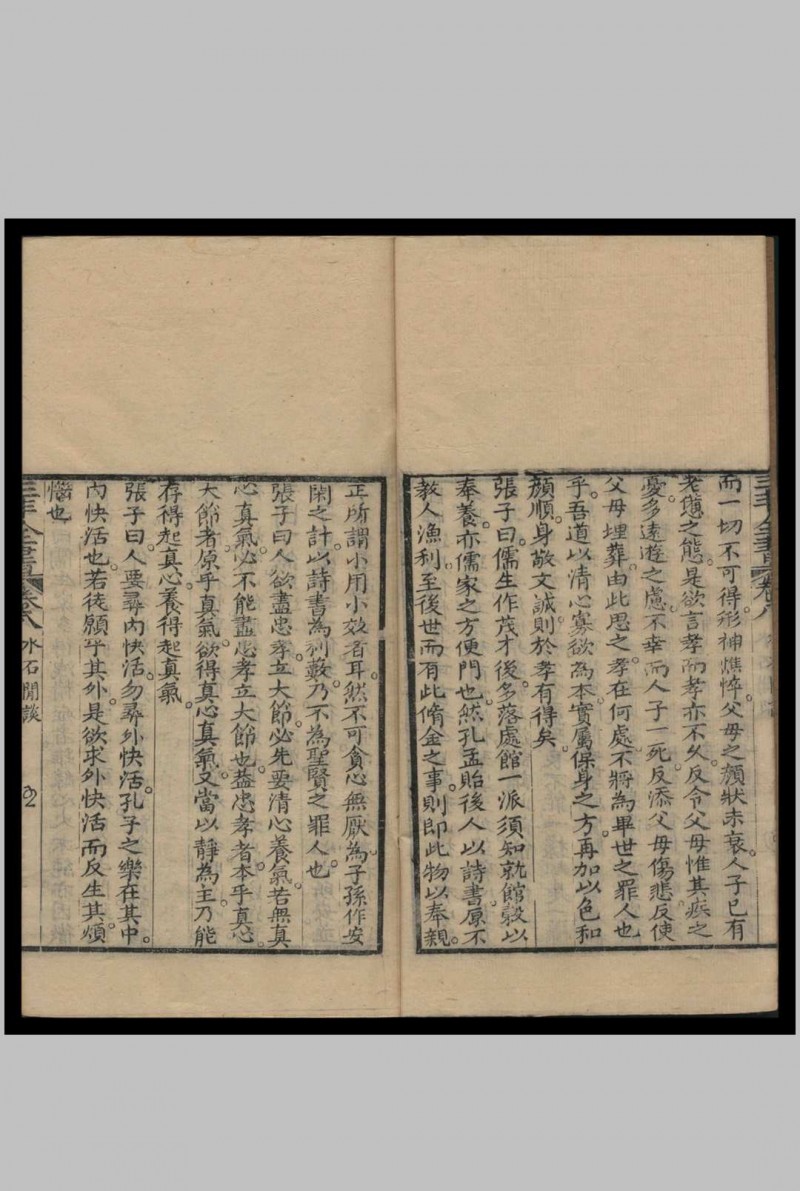 而一切不可得形神憔悴父母之顏狀未衰人子已有
老憊之態是欲言孝而孝亦不久反令父母惟其疾之
憂多遠遊之慮不幸而人子一死反添父母傷悲反使
父母埋葬由此思之孝在何處不將為畢世之罪人也
乎吾道以清心寡欲為本實屬保身之方再加以色和
顏順身敬文誠則於孝有得矣
張子曰儒生作茂才後多落處館一派須知就館穀以
奉養亦儒家之方便門也然孔孟貽後人以詩書原不
教人漁利至後世而有此脩金之事則即此物以奉親
正所謂小用小效者耳然不可貪心無厭為子孫作安
閑之計以詩書為利藪乃不為聖賢之罪人也
張子曰人欲盡忠孝立大節必先要清心養氣若無真
心真氣必不能盡忠孝立大節也蓋忠孝者本乎真心
大節者原乎真氣欲得真心真氣又當以靜為主乃能
存得起真心養得起真氣
張子曰人要尋內快活勿尋外快活孔子之樂在其中
內快活也若徒願乎其外是欲求外快活而反生其煩
惱也
三丰全書 卷八 水石閒談